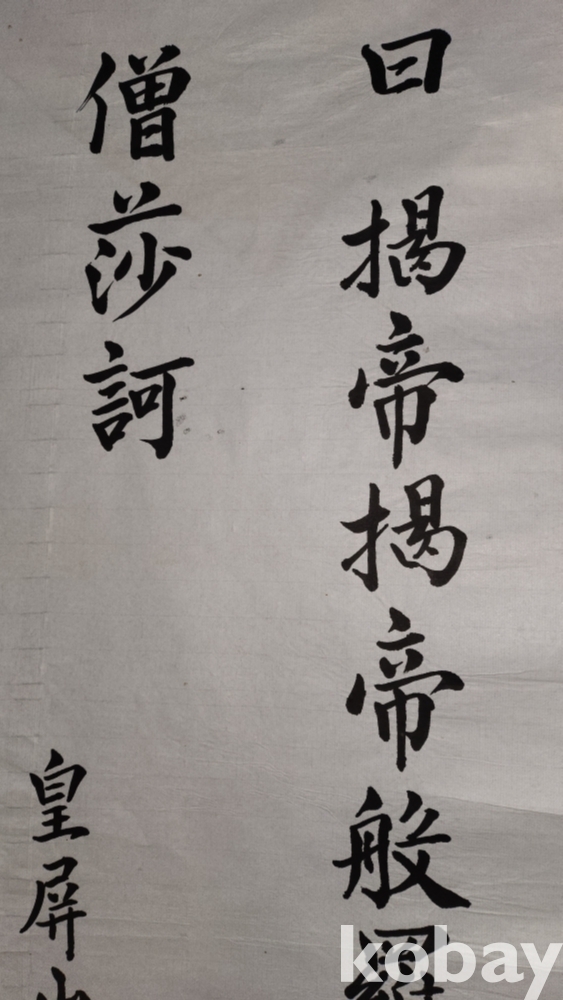 曰揭帝揭帝般羅
僧莎訶
皇屏山
kobay